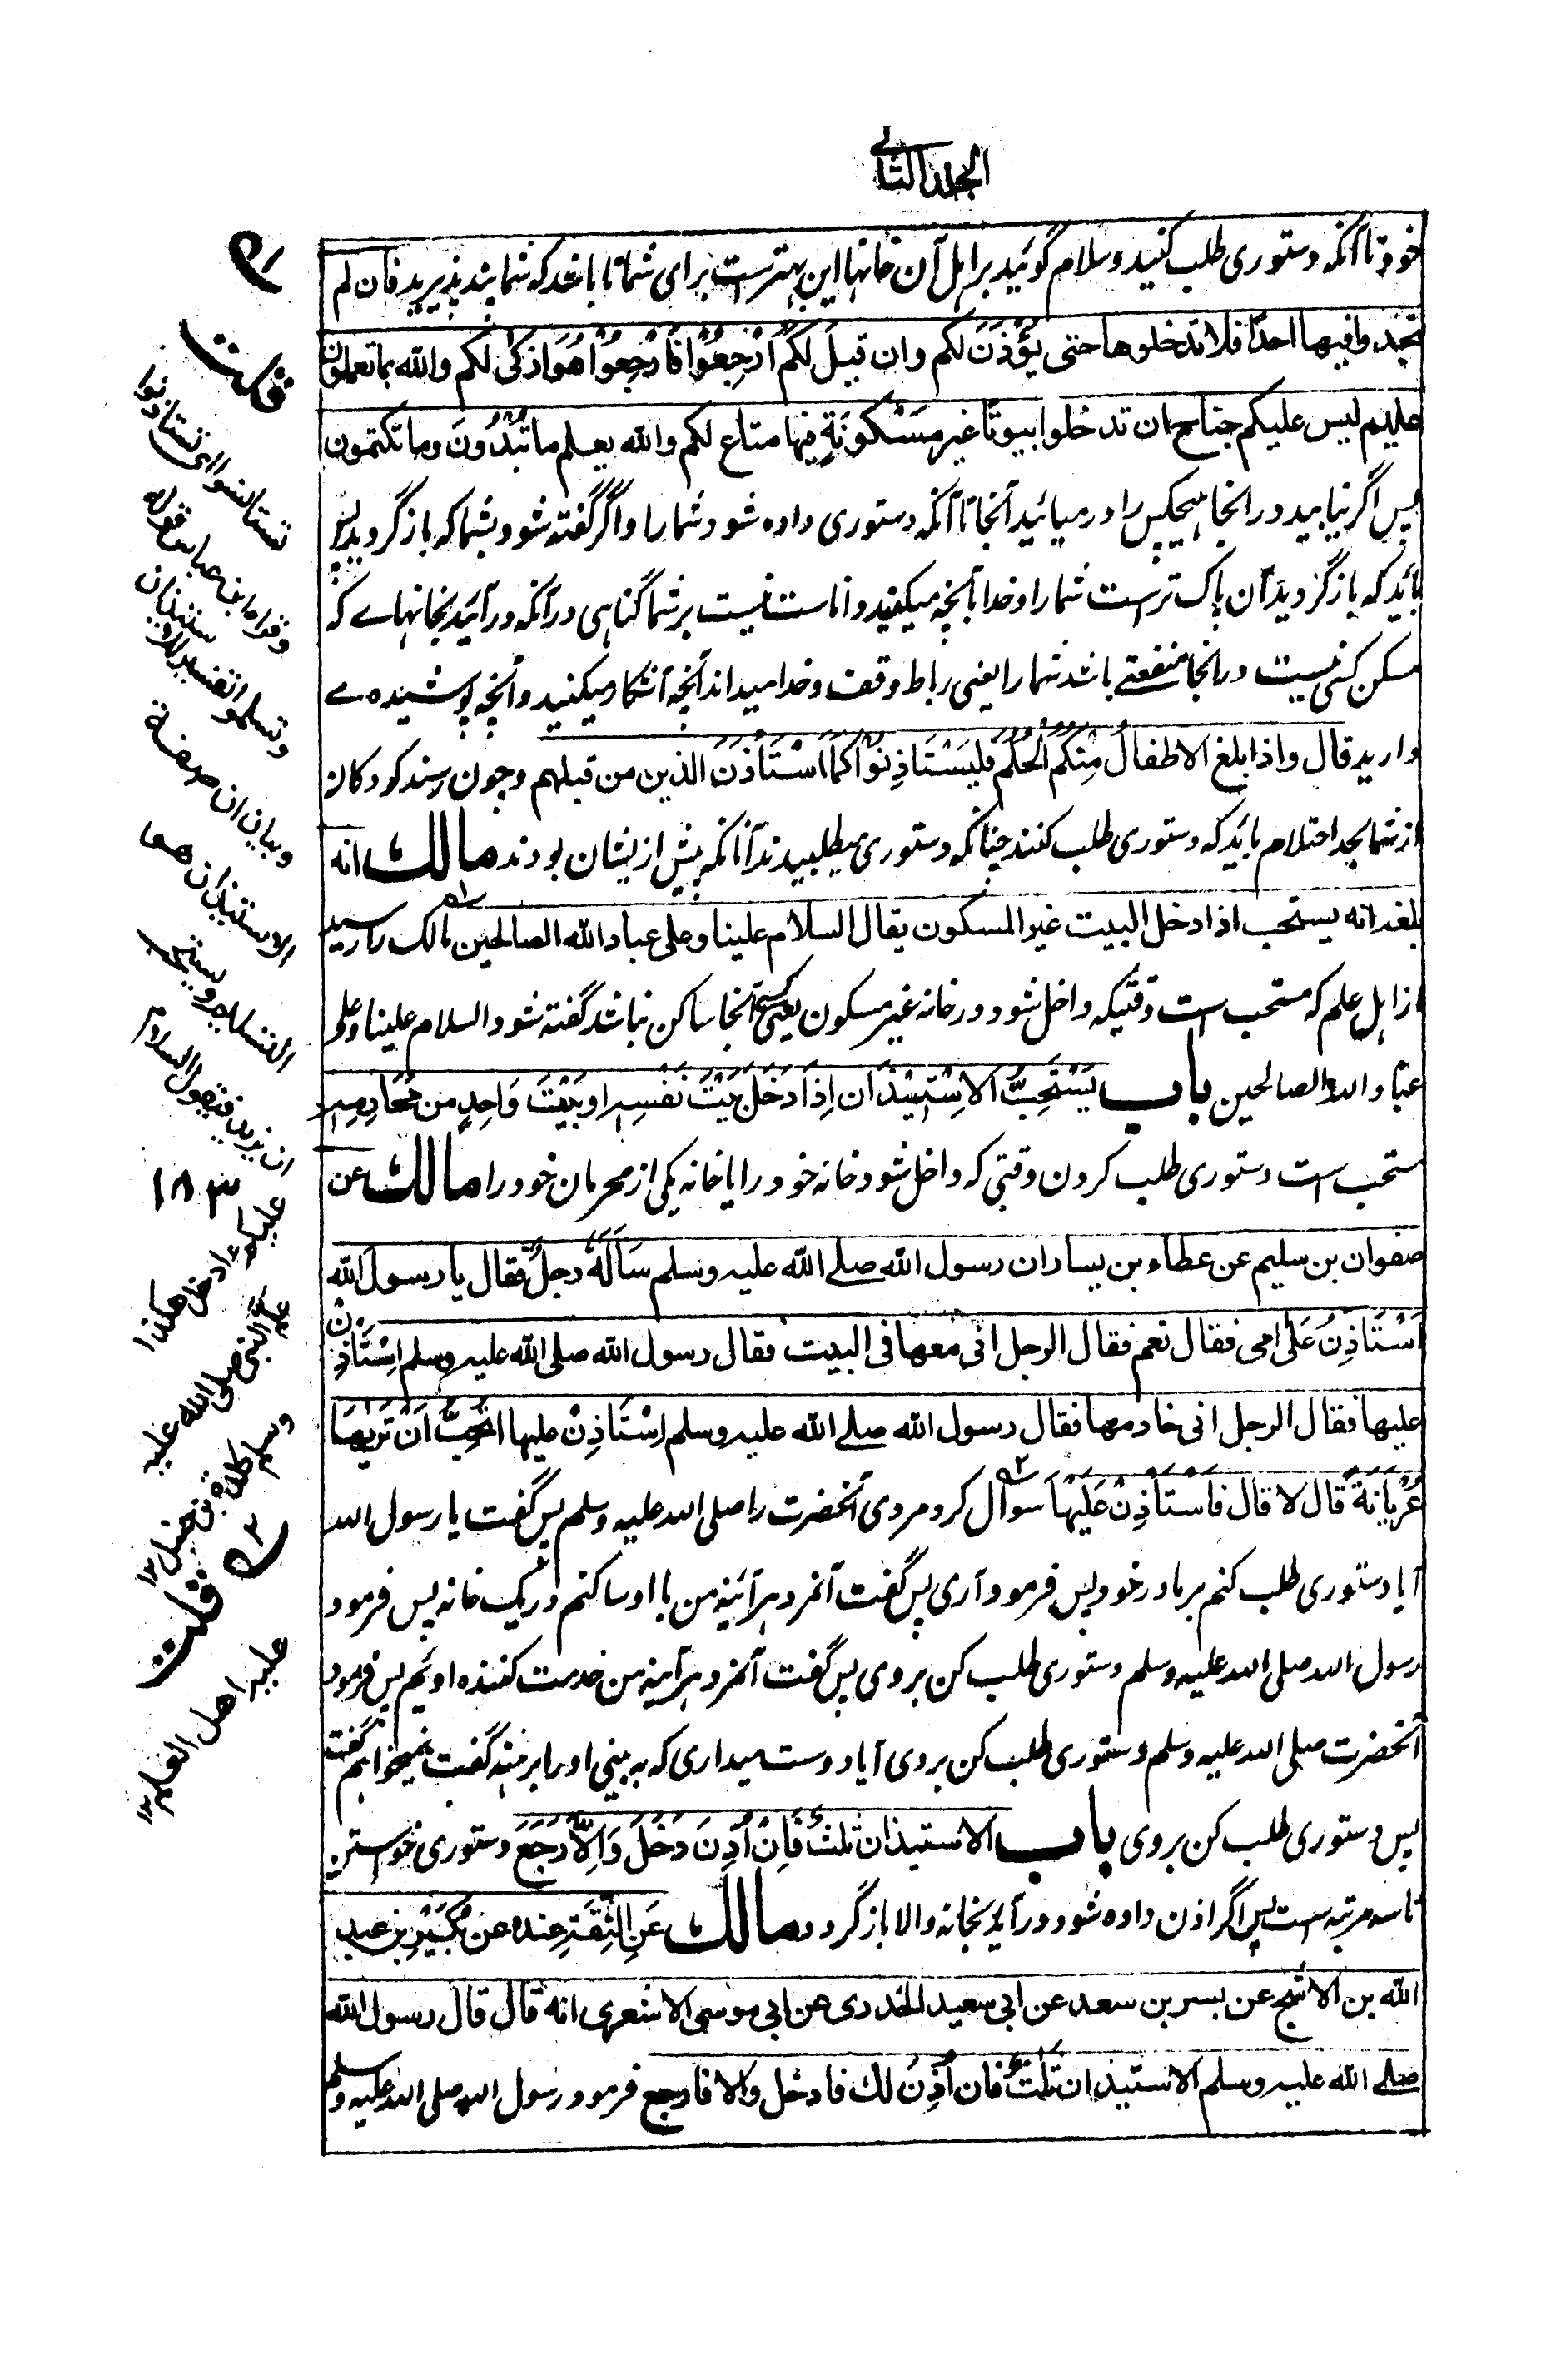 الجلد الثانی
خود تا آنکه دستوری طلب کنید و سلام گوئید بر اهل آن خانها این بهترست برای شما تا باشد که شما پند پذیرید فان لم
تجدوا فیها احدًا فلا تدخلوها حتی یُؤْذَنَ لکم وان قیلَ لکُمُ ارْجِعُوْا فَارْجِعُوْا هُوَ اَزکٰی لکم والله بما تعملون
علیم لیس علیکم جناح ان تدخُلوا بیوتًا غیر مَسْکونَةٍ فیها متاع لکم والله یعلم ما تُبْدُونَ وما تکتمون
پس اگر نیابید در انجا هیچکس را در میائید آنجا تا آنکه دستوری داده شود شما را و اگر گفته شود بشما که بازگردید پس
باید که بازگردید آن پاک ترست شما را و خدا بآنچه میکنید داناست نیست بر شما گناهی در آنکه درآئید بخانهاے که
مسکن کسی نیست در انجا منفعتے باشد شما را یعنی رباط وقف و خدا میداند آنچه آشکار میکنید و آنچه پوشیده مے
دارید قال واذا بلغ الاطفالُ مِنْکُمُ الْحُلُمَ فَلْیَسْتَاذِنُوْا کَمَا اسْتَأْذَنَ الذین من قبلهم و چون رسند کودکان
از شما بحد احتلام باید که دستوری طلب کنند چنانکه دستوری میطلبیدند آنانکه پیش از یشان بودند مالك انه
بلغه انه یستحب اذا دخل البیت غیر المسکون یقال السلام علینا وعلی عباد الله الصالحین مالک را رسید
از اهل علم که مستحب است وقتیکه داخل شود در خانه غیر مسکون یعنی کسی آنجا ساکن نباشد گفته شود السلام علینا وعلی
عباد الله الصالحین باب یَسْتَحِبُّ الاِسْتِیْذَان اِذَا دَخَلَ بَیْتَ نَفْسِهٖ او بَیْتَ وَاحِدٍ من مَحَارِمِهٖ
مستحب است دستوری طلب کردن وقتی که داخل شود خانه خود را یا خانه یکی از محرمان خود را مالك عن
صفوان بن سلیم عن عطاء بن یسار ان رسول الله صلے الله علیه وسلم سَاَلَهٗ رجلٌ فقال یا رسول الله
اَسْتَاذِنُ عَلٰی امی فقال نعم فقال الرجل انی معها فی البیت فقال رسول الله صلی الله علیه وسلم اِسْتَاذِنْ
علیها فقال الرجل انی خادمها فقال رسول الله صلے الله علیه وسلم اِسْتَاذِنْ علیها اتُحِبُّ اَنْ تَرٰیهَا
عُرْیَانَةً قال لا قال فَاسْتَأْذِنْ عَلَیْهَا سوال کرد مردی آنحضرت را صلی الله علیه وسلم پس گفت یا رسول الله
آیا دستوری طلب کنم بر مادر خود پس فرمود آری پس گفت آنمرد هرآئینه من با او ساکنم در یک خانه پس فرمود
رسول الله صلی الله علیه وسلم دستوری طلب کن بر وی پس گفت آنمرد هرآئینه من خدمت کننده اویم پس فرمود
آنحضرت صلی الله علیه وسلم دستوری طلب کن بر وی آیا دوست میداری که به بینی او را برهنه گفت نمیخواهم گفت
پس دستوری طلب کن بر وی باب الاستیذان ثلثٌ فَاِنْ اُذِنَ دَخَلَ وَاِلَّا رَجَعَ دستوری خواستن
تا سه مرتبه ست پس اگر اذن داده شود درآید بخانه والا بازگردد مالك عَنِ الثِّقَةِ عنده عن بُکَیْرِ بن عبد
الله بن الاشج عن بسر بن سعد عن ابی سعید الخدری عن ابی موسی الاشعری انه قال قال رسول الله
صلے الله علیه وسلم الاستیذان ثلثٌ فان اُذِنَ لك فادخل والا فارجع فرمود رسول الله صلی الله علیه وسلم
قلت
تستانسوا ای تستاذنوا
وقرا ابن عباس
وتسلموا تفسیر للاستیذان
وبیان ان صفة
الاستیذان هو
ان یزید فیقول السلام
علیکم ءادخل هکذا
علم النبی صلی الله علیه
وسلم کلدة بن حنبل ١٢
١٨٣
قلت
علیه اهل العلم ١٢